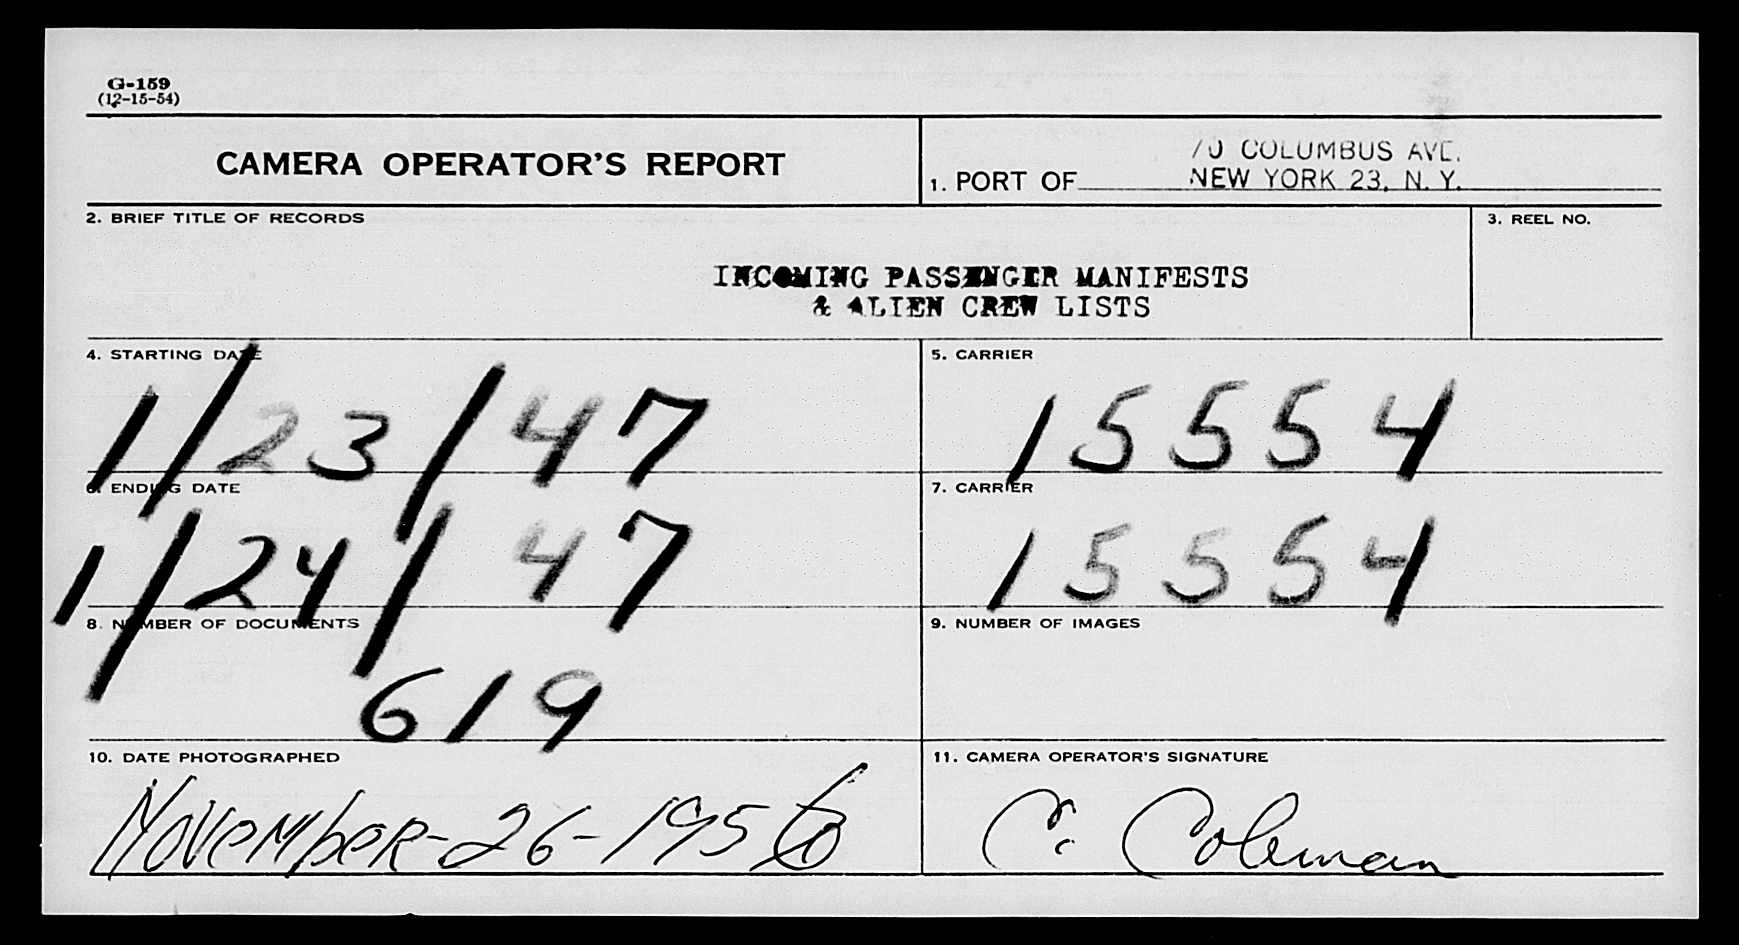 G-159
(12-15-54)
CAMERA OPERATOR'S REPORT
70 COLUMBUS AVE.
1. PORT OF NEW YORK 23, N. Y.
2. BRIEF TITLE OF RECORDS
3. REEL NO.
INCOMING PASSENGER MANIFESTS
& ALIEN CREW LISTS
4. STARTING DATE
1/23/47
5. CARRIER
15554
6. ENDING DATE
1/24/47
7. CARRIER
15554
8. NUMBER OF DOCUMENTS
619
9. NUMBER OF IMAGES
10. DATE PHOTOGRAPHED
November-26-1956
11. CAMERA OPERATOR'S SIGNATURE
C. Coleman